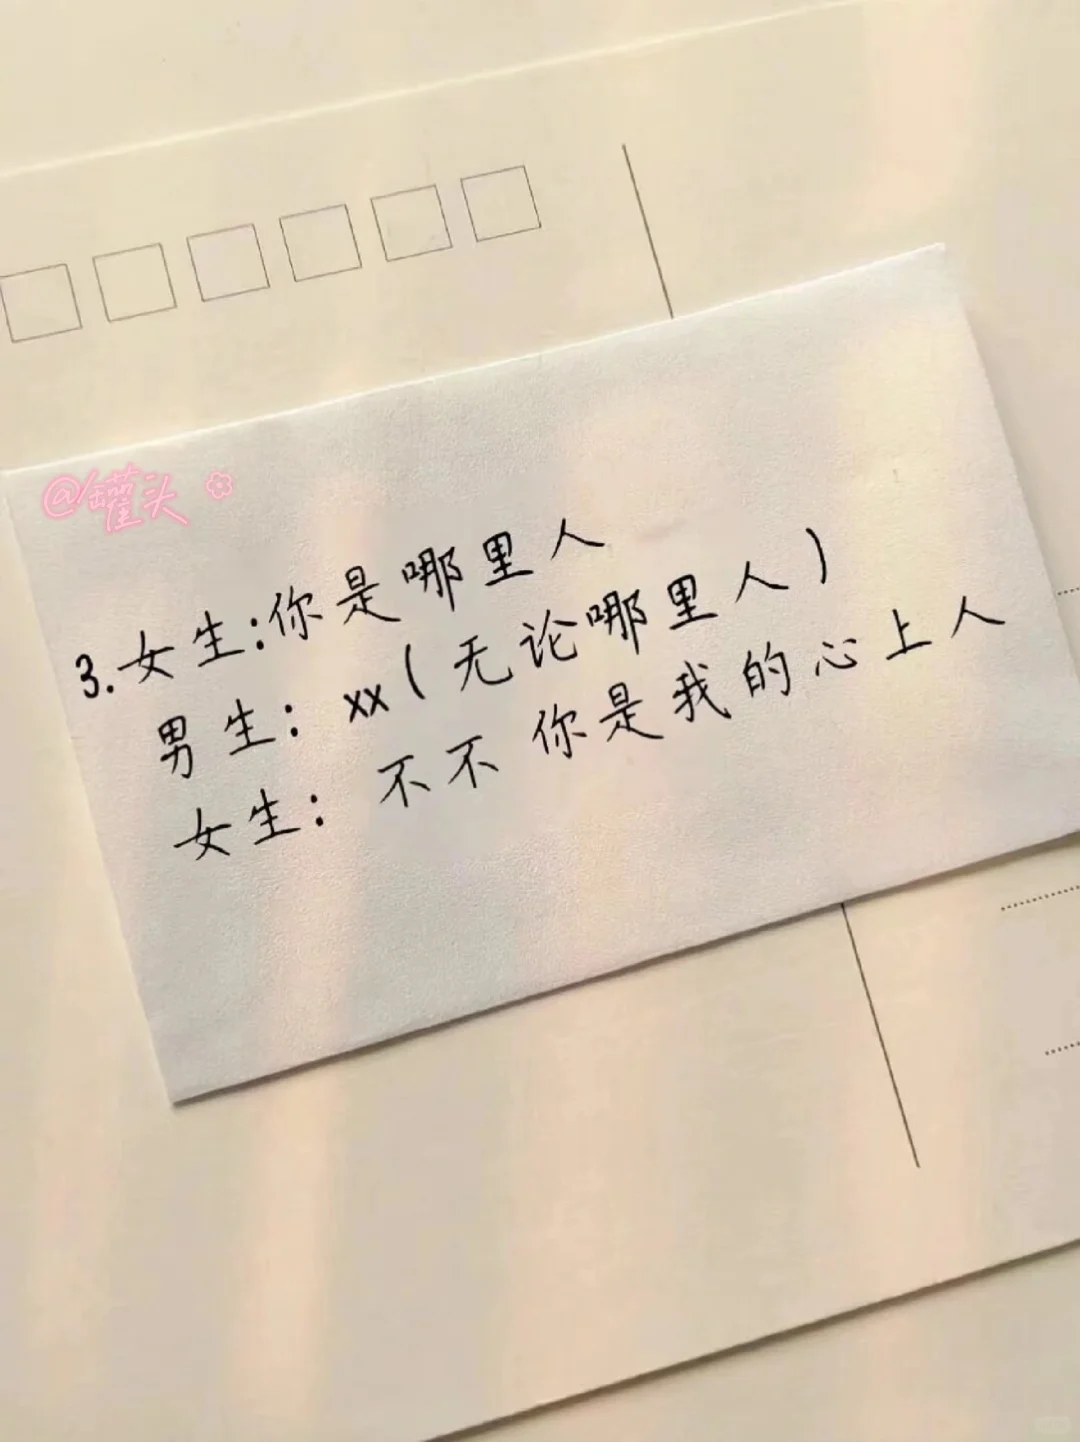 @罐头
3.女生:你是哪里人
男生: xx(无论哪里人)
女生: 不不 你是我的心上人